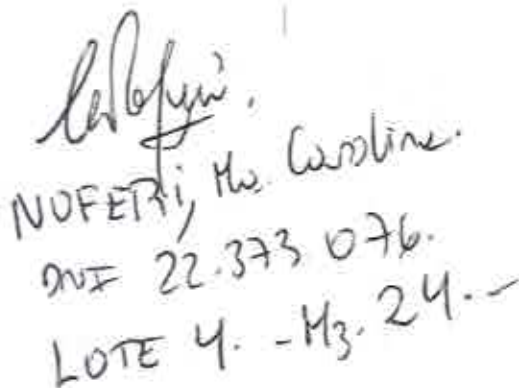 NUFERi, Ma. Carolina.
DNI 22.373 076.
LOTE 4. - Mz. 24. -